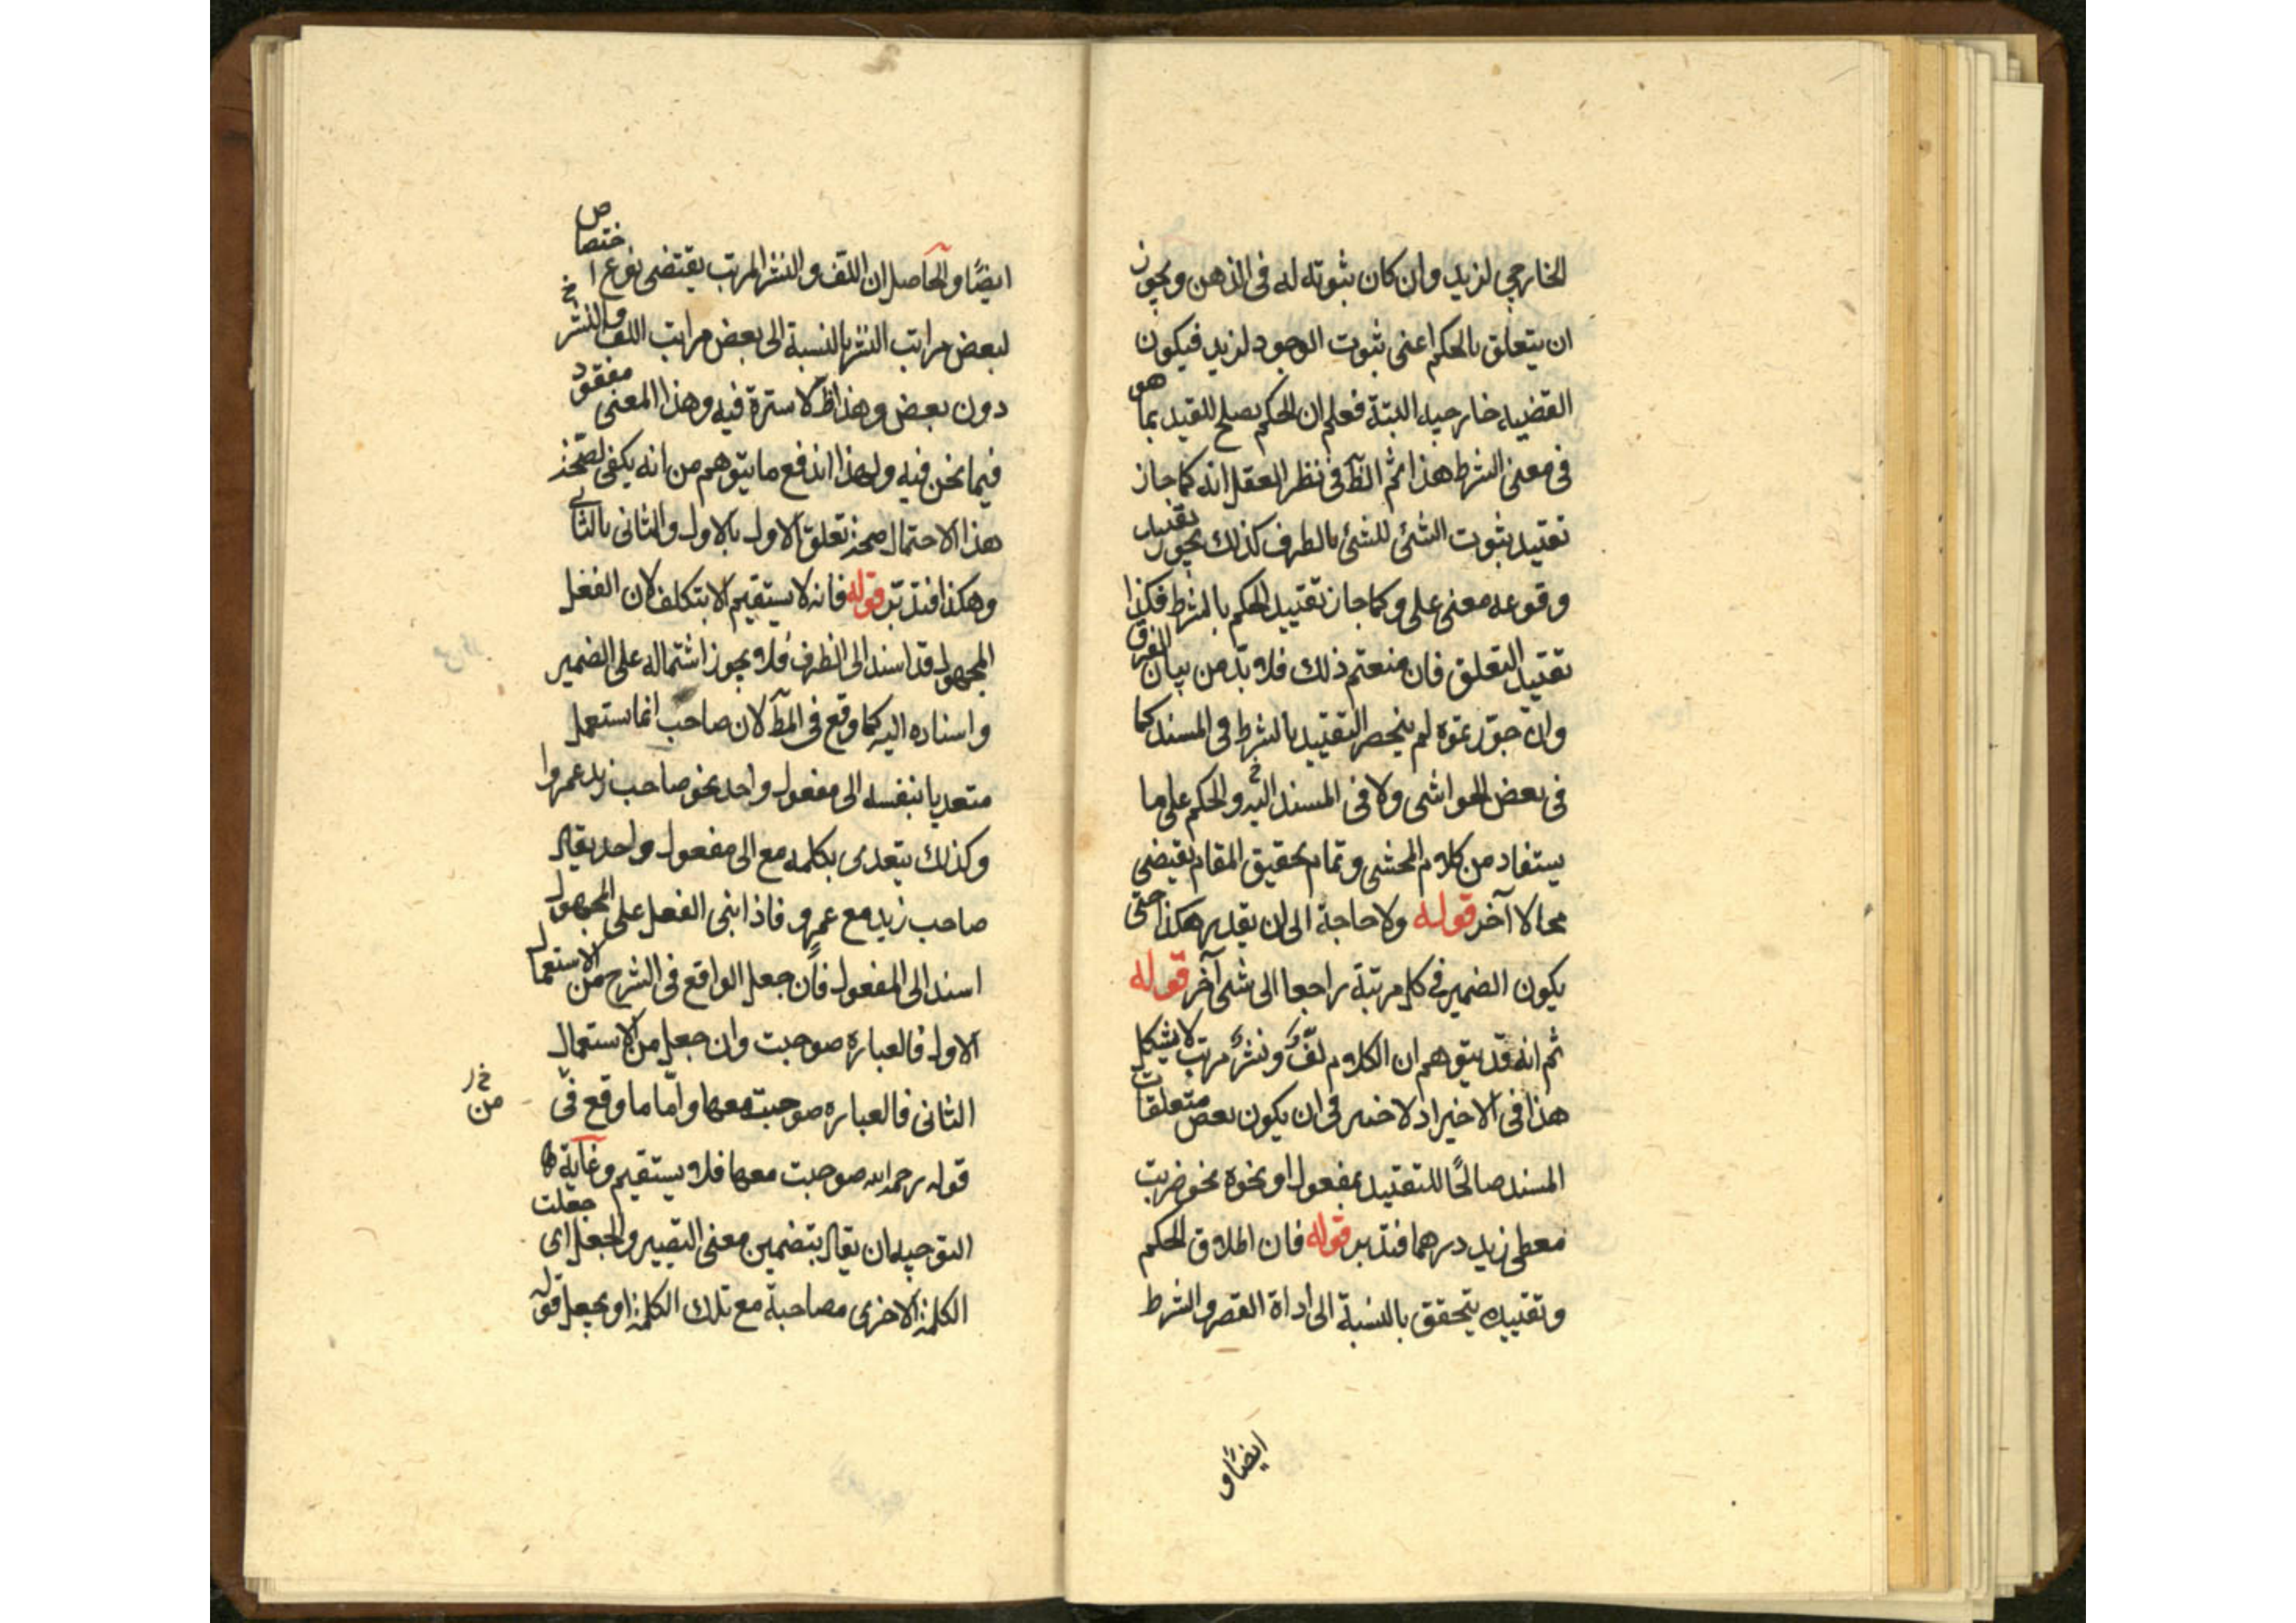 الخارجي لزيد وان كان ثبوته له فى الذهن ويجوز
ان يتعلق بالحكم اعنى ثبوت الوجود لزيد فيكون
القضيه خارجيه البتة فعلم ان الحكم يصلح للقيد بما هو
فى معنى الشرط هذا ثم الظ فى نظر العقل انه كما جاز
تقييد ثبوت الشئ للشئ بالطرف كذلك يجوز تقييد
وقوعه معنى على وكما جاز تقييد الحكم بالشرط فكذا
تقييد التعلق فان منعتم ذلك فلا بد من بيان الفرق
وان جوزتموه لم ينحصر التقييد بالشرط فى المسند كما
فى بعض الحواشى ولا فى المسند اليه والحكم على ما
يستفاد من كلام المحشى وتمام تحقيق المقام يقتضى
مجالا آخر قوله ولا حاجة الى ان يقدر هكذا حتى
يكون الضمير فى كل مرتبة راجعا الى شئ آخر قوله
ثم انه قد يتوهم ان الكلام لفٌ ونشرٌ مرتب لا يشكل
هذا فى الاخير اذ لا خفى فى ان يكون بعض متعلقات
المسند صالحًا للتقييد بمفعول او نحوه نحو ضربت
معطى زيد درهما فتدبر قوله فان اطلاق الحكم
وتقييده يتحقق بالنسبة الى اداة القصر والشرط
ايضًا و
ايضًا والحاصل ان اللف والنشر المرتب يقتضى نوع اختصاص
لبعض مراتب النشر بالنسبة الى بعض مراتب اللف والنشر خ
دون بعض وهذا ظ لا سترة فيه وهذا المعنى مفقود
فيما نحن فيه ولهذا اندفع ما يتوهم من انه يكفى لصحة
هذا الاحتمال صحة تعلق الاول بالاول والثانى بالثانى
وهكذا فتدبر قوله فانه لا يستقيم الا بتكلف لان الفعل
المجهول قد اسند الى الظرف فلا يجوز اشتماله على الضمير
واسناده اليه كما وقع فى المط لان صاحب انما يستعمل
متعديا بنفسه الى مفعول واحد نحو صاحب زيد عمروا
وكذلك يتعدى بكلمه مع الى مفعول واحد يقال
صاحب زيد مع عمرو فاذا بنى الفعل على المجهول
اسند الى المفعول فان جعل الواقع فى الشرح من الاستعمال
الاول فالعباره صوحبت وان جعل من الاستعمال
الثانى فالعباره صوحبت معها واما ما وقع فى
من خ ر
قوله رحمه الله صوحبت معها فلا يستقيم وغاية
التوجيه ان يقال بتضمين معنى التصيير والجعل اى جعلت
الكلمة الاخرى مصاحبة مع تلك الكلمة او يجعل قوله